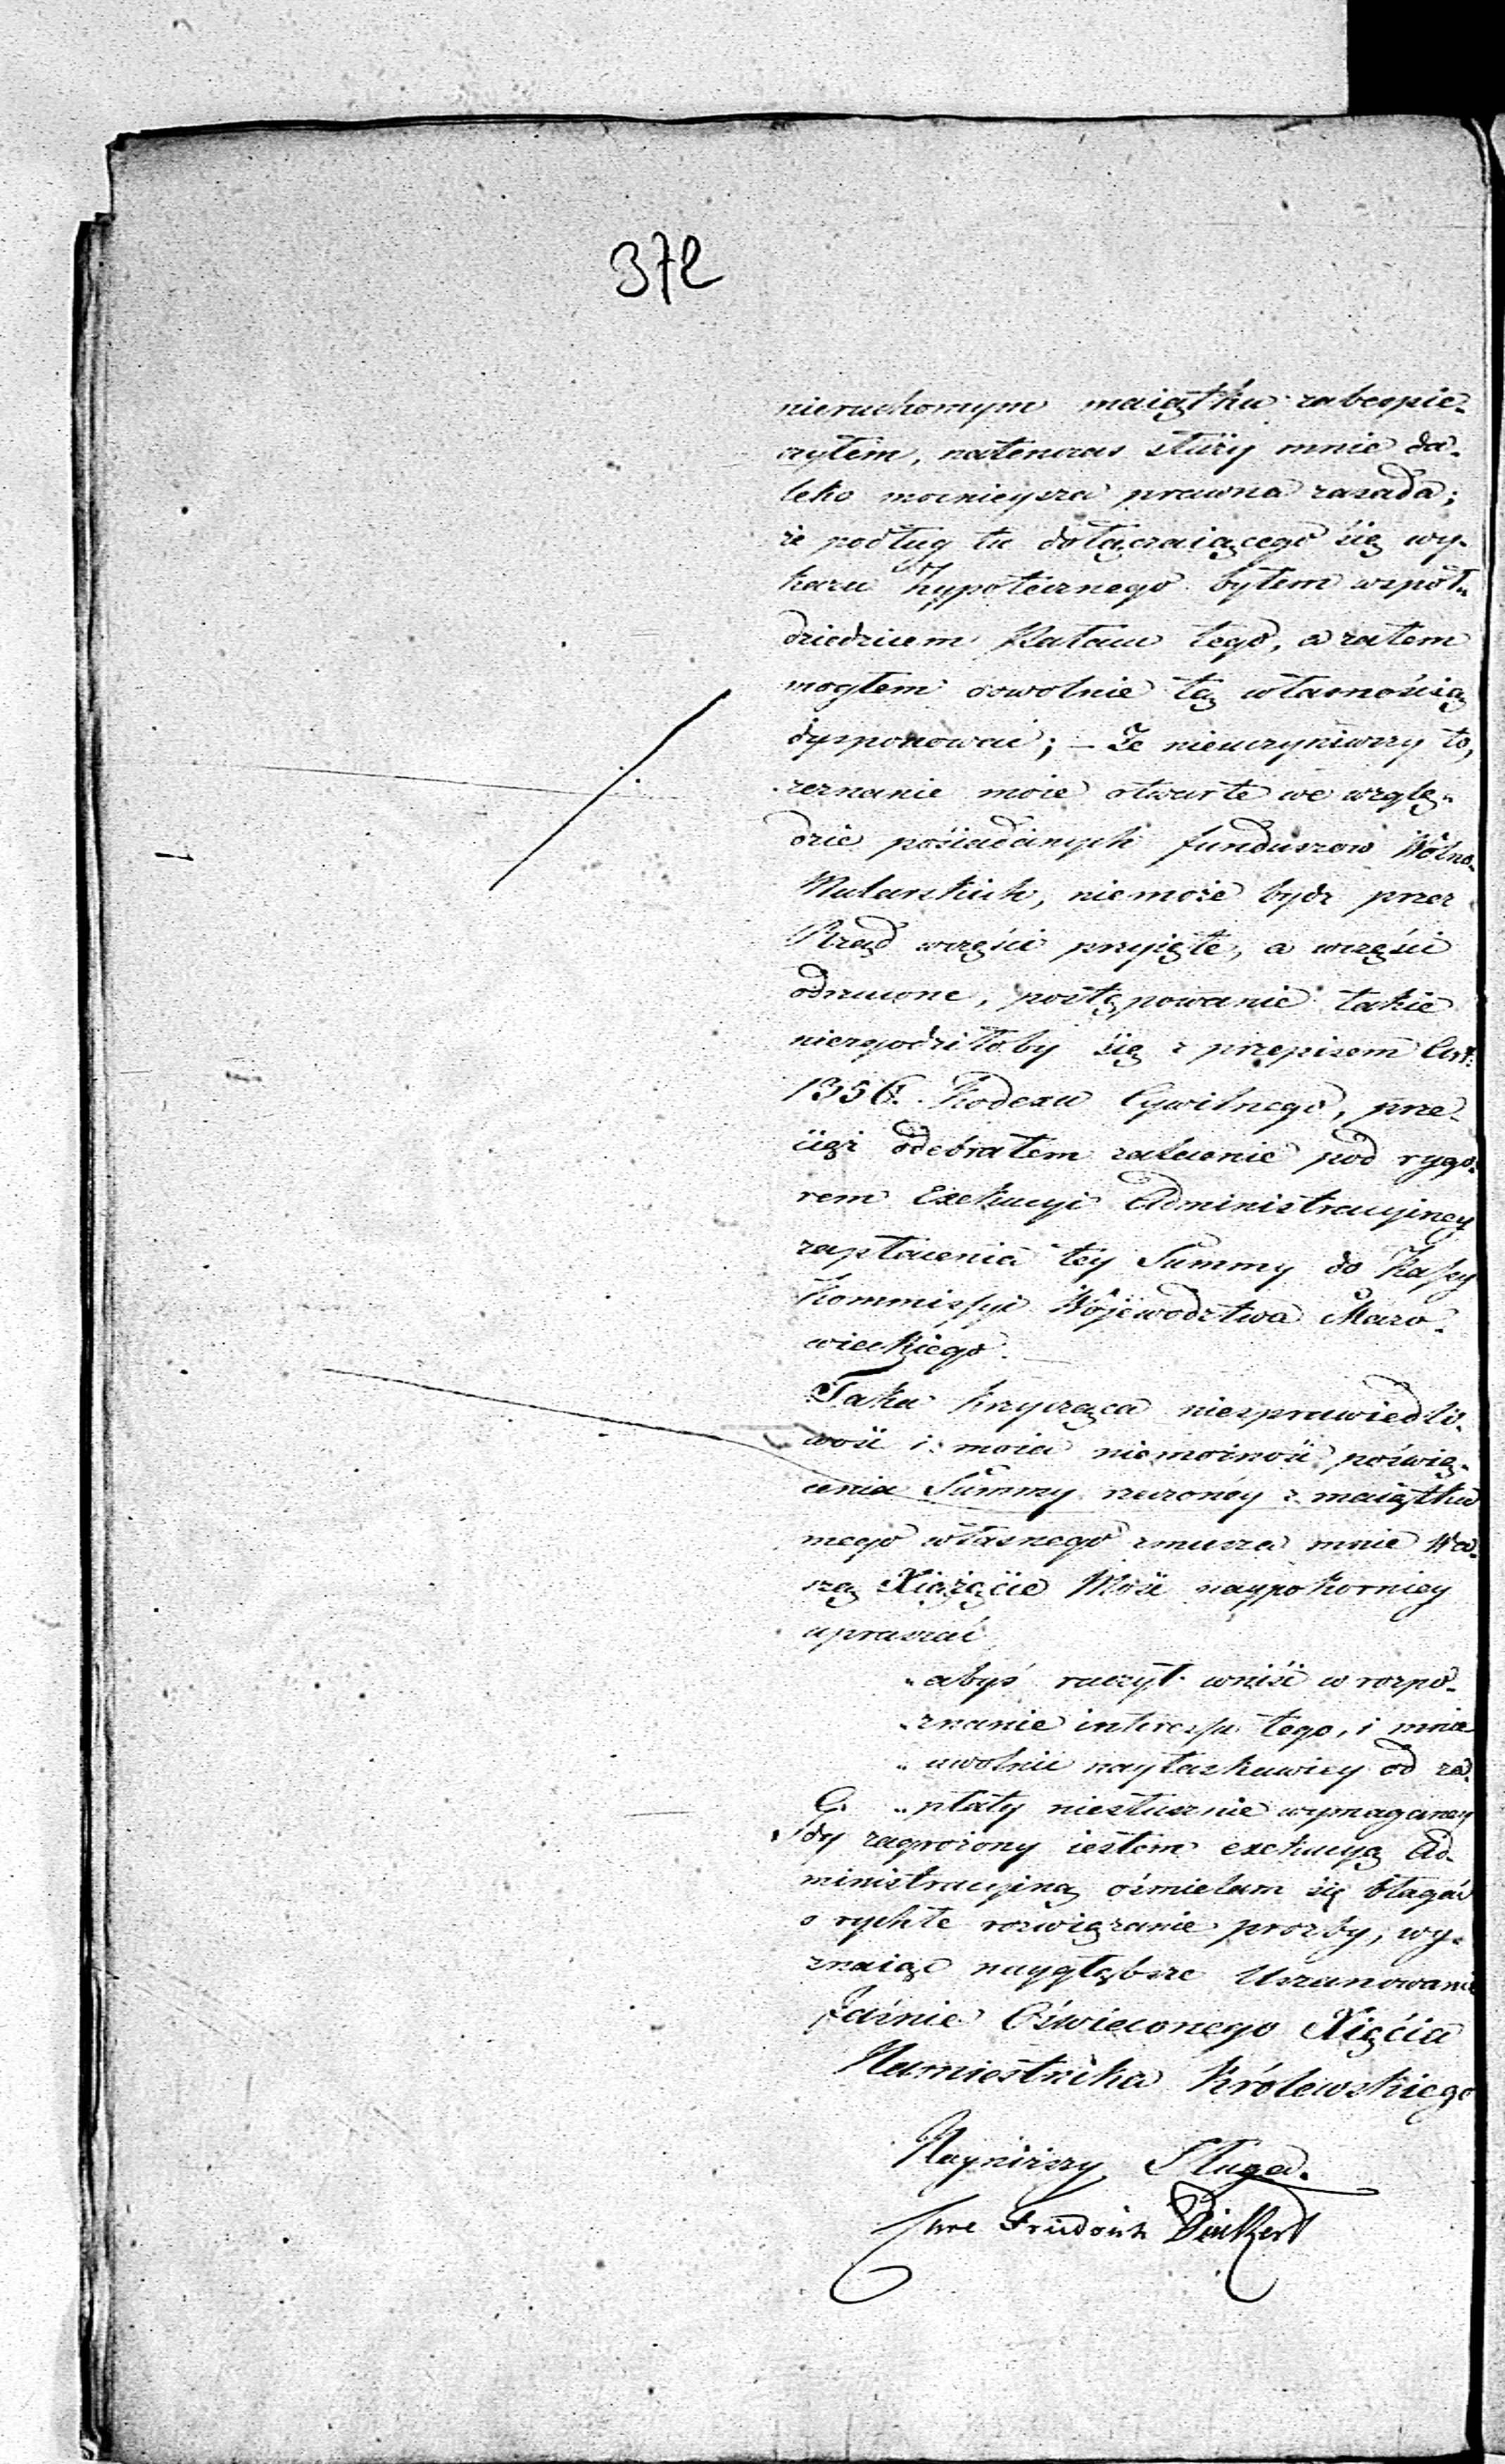 372
nieruchomym maiątku zabespie-
czyłem, natenczas służy mnie da-
leko mocnieysza prawna zasada;
że podług tu dołączaiącego się wy-
kazu hypotecznego byłem współ-
dziedzicem Pałacu tego, a zatem
mogłem dowolnie tą własnością
dysponować; – Że nieuczyniwszy to,
zeznanie moie otwarte we wzglę-
dzie posiadanych funduszow Wolno-
Mularskich, niemoże bydz przez
Rząd wczęści przyięte, a wczęści
odrzucone, postępowanie takie
niezgodziłoby się z przepisem Art:
1356. Kodexu Cywilnego, prze-
cięż odebrałem zalecenie pod rygo-
rem Exekucyi Administracyiney
zapłacenia tey Summy do Kassy
Kommissyi Woiewodztwa Mazo-
wieckiego.
Taka krzycząca niesprawiedli-
wość i moia niemożność poświę-
cenia Summy rzeczoney z maiątku
mego własnego zmusza mnie Wa-
szą Xiążęcię Mość naypokorniey
upraszać
„abyś raczył wniść w rozpo-
„znanie interessu tego, i mnie
„uwolnić nayłaskawiey od za-
„płaty niesłusznie wymaganey
Gdy zagrożony iestem exekucyą Ad-
ministracyiną ośmielam się błagać
o rychłe rozwiązanie prozby, wy-
znaiąc naygłębsze Uszanowanie
Jaśnie Oświeconego Xięcia
Namiestnika Królewskiego
Nayniższy Sługa.
Friedrich